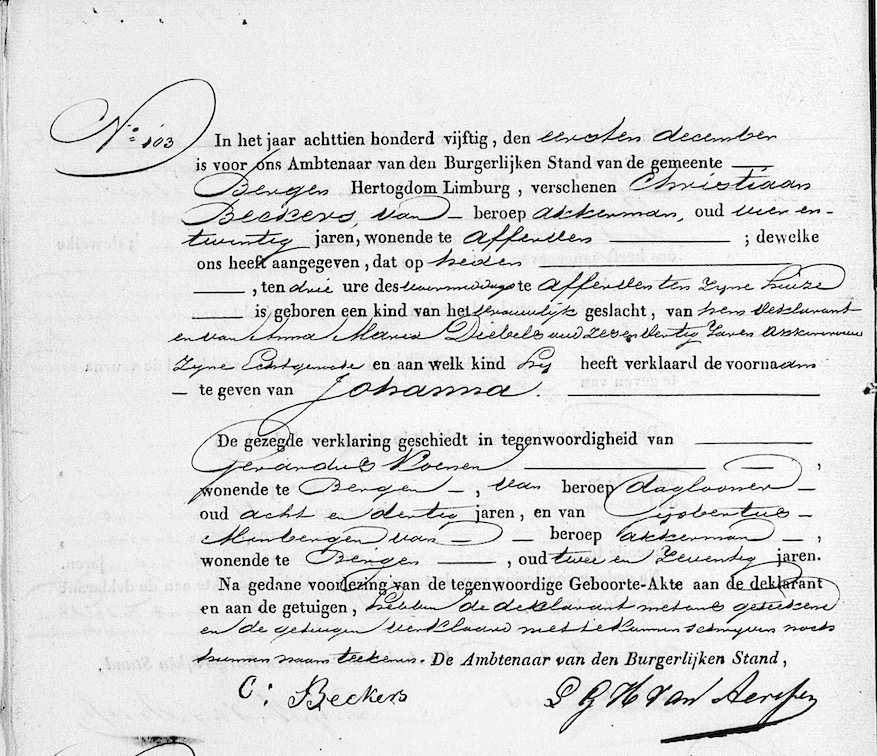 No. 103
In het jaar achttien honderd vijftig, den eersten december
is voor ons Ambtenaar van den Burgerlijken Stand van de gemeente
Bergen Hertogdom Limburg, verschenen Christiaan
Beckers, van beroep akkerman, oud vier en-
twentig jaren, wonende te Afferden ; dewelke
ons heeft aangegeven, dat op heiden
, ten drie ure des voormiddags te Afferden ten zyne huize
is geboren een kind van het vrouwlijk geslacht, van hem deklarant
en van Anna Maria Diebels oud zeven dertig Jaren
Zyne Echtgenote en aan welk kind hij heeft verklaard de voornaam
te geven van Johanna.
De gezegde verklaring geschiedt in tegenwoordigheid van
Gerardus ,
wonende te Bergen , van beroep daglooner
oud acht en dertig jaren, en van Gijsbertus
van beroep akkerman ,
wonende te Bergen , oud twee en Zeventig jaren.
Na gedane voorlezing van de tegenwoordige Geboorte-Akte aan de deklarant
en aan de getuigen, hebben de deklarant met ons getekend
en de getuigen verklaard niet te kunnen schryven noch
hunnen naam teekenen. De Ambtenaar van den Burgerlijken Stand,
C: Beckers P G H van Aerssen